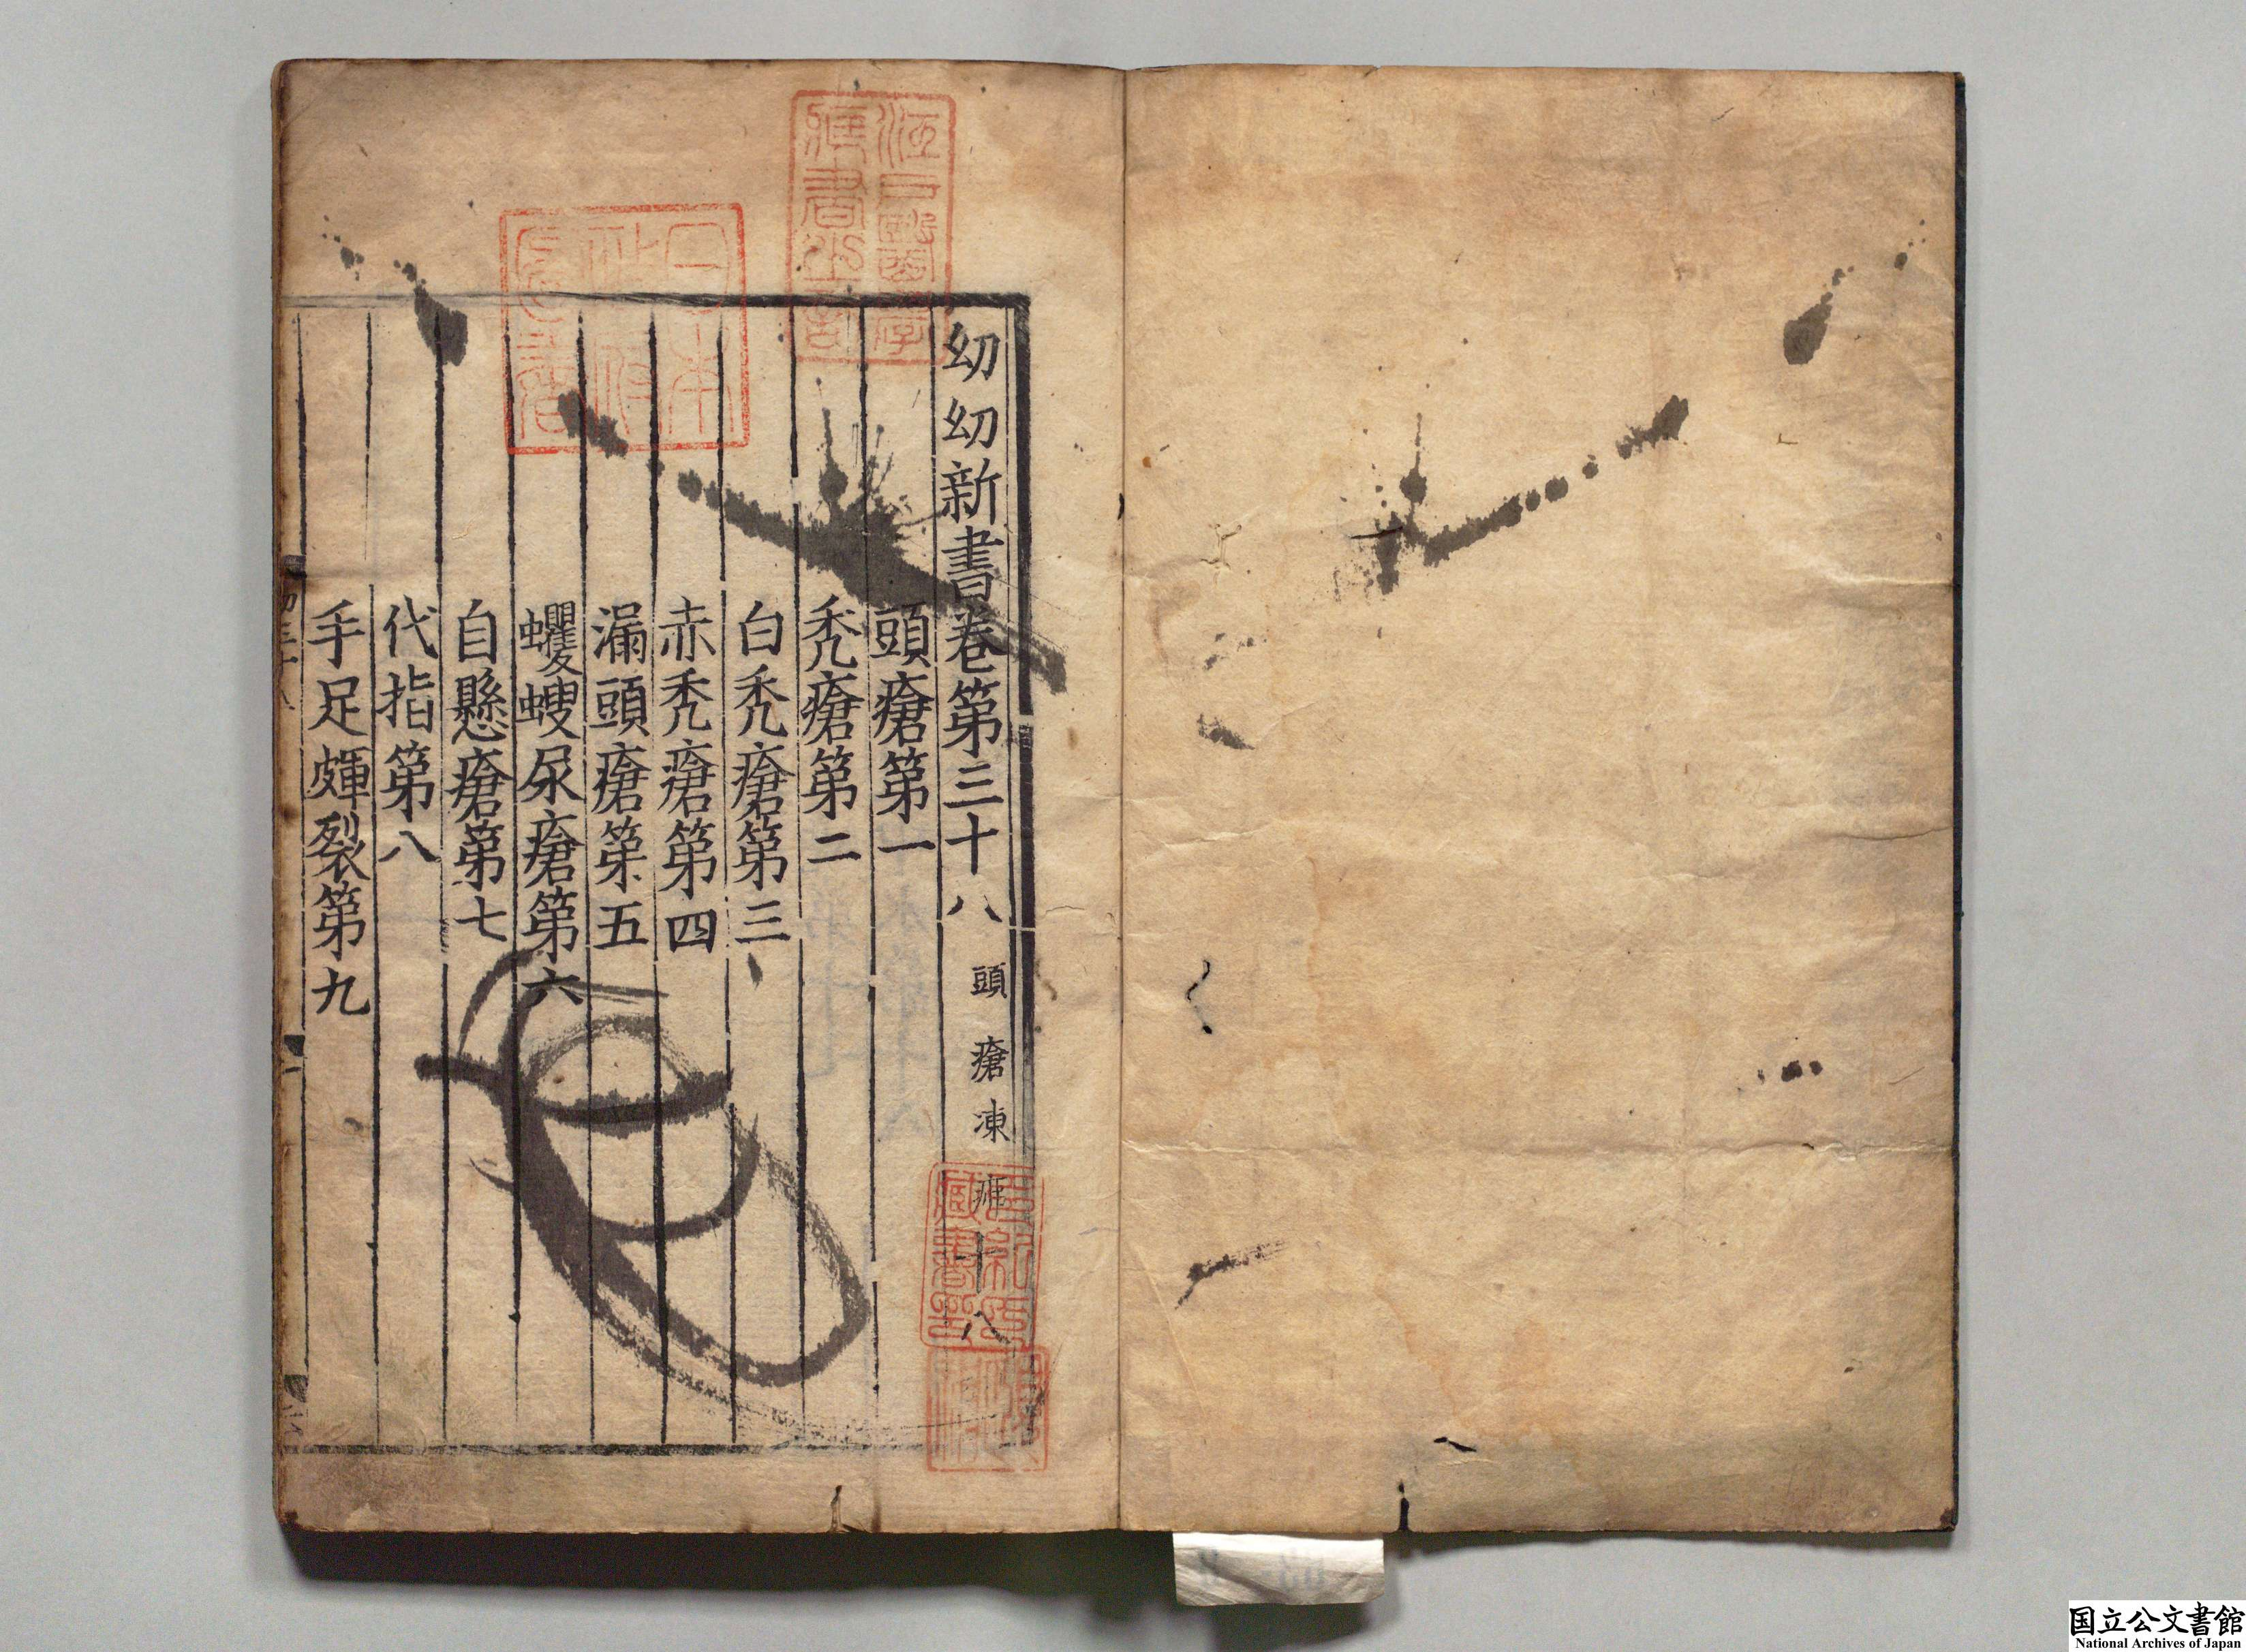 幼幼新書卷第三十八 頭瘡凍瘡十八
頭瘡第一
禿瘡第二
白禿瘡第三
赤禿瘡第四
漏頭瘡第五
蠼螋尿瘡第六
自懸瘡第七
代指第八
手足皸裂第九
江戸醫學藏書之記
日本政府圖書
国立公文書館
National Archives of Japan